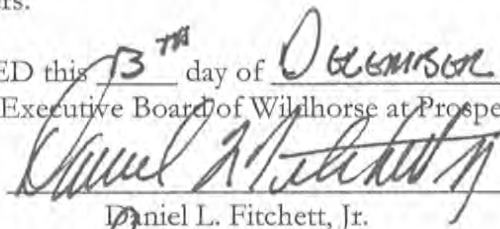 ers.
ED this 13TH day of DECEMBER
Executive Board of Wildhorse at Prospe
Daniel L Fitchett Jr
Daniel L. Fitchett, Jr.